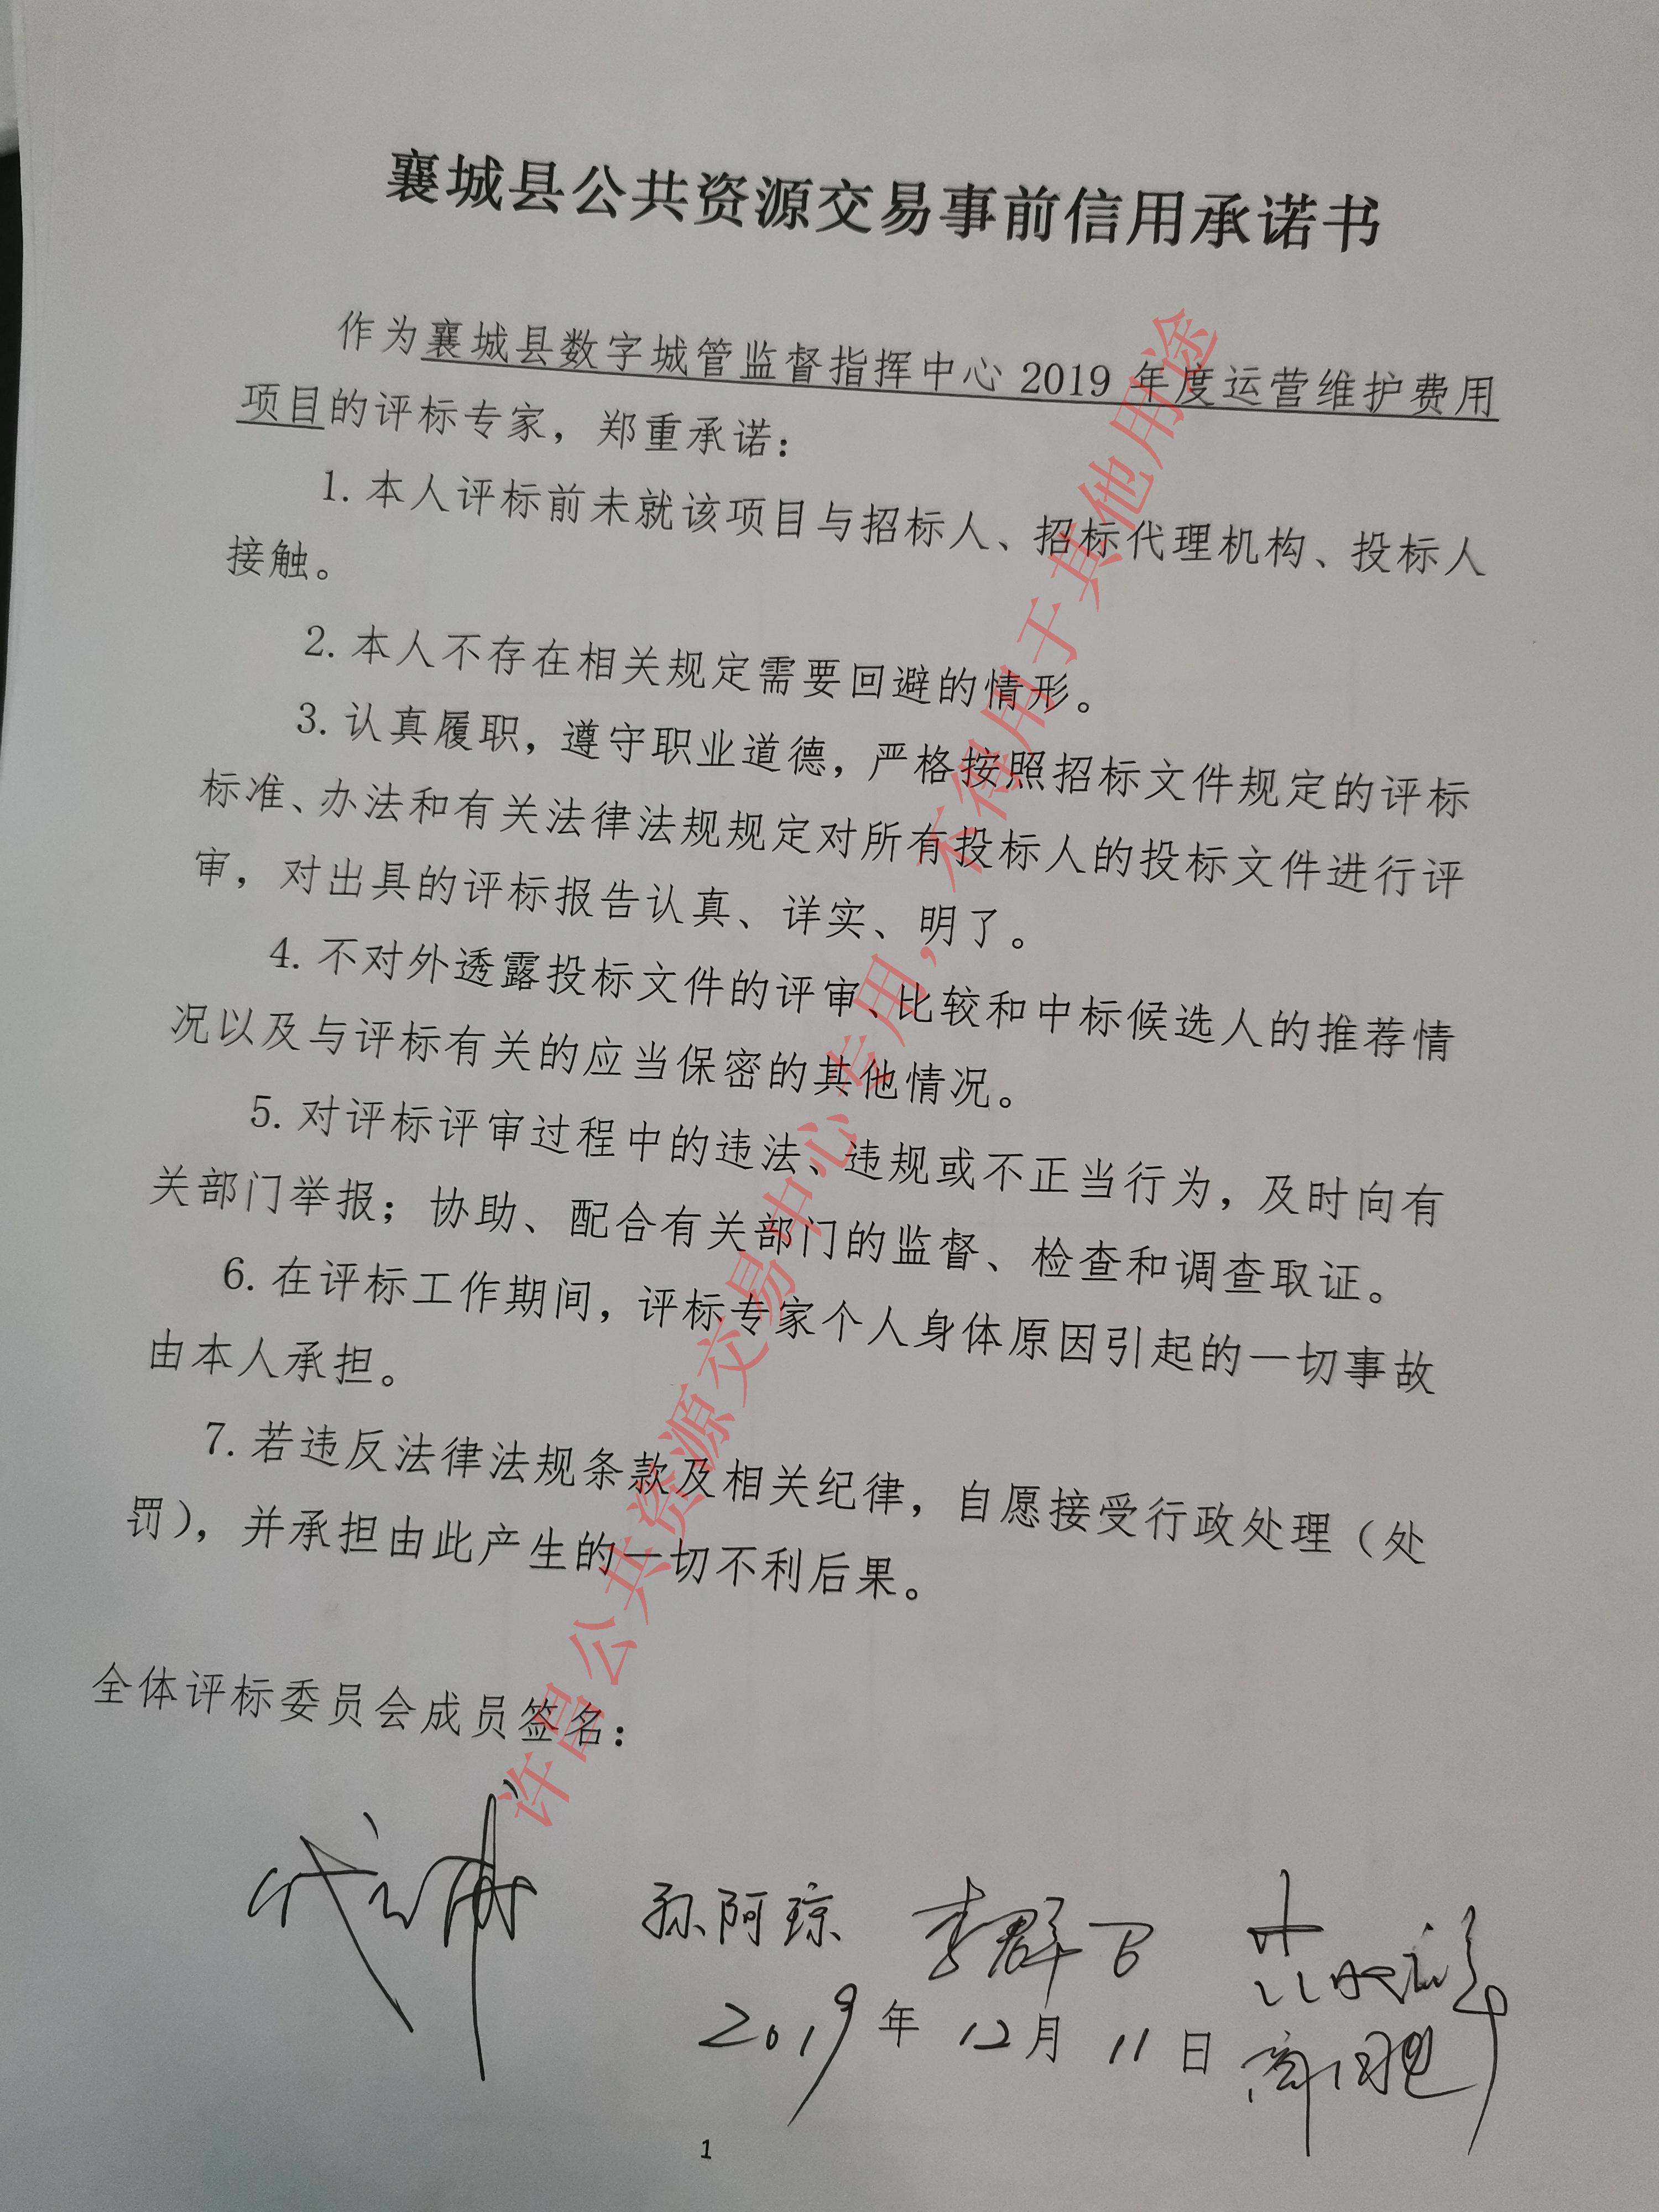 襄城县公共资源交易事前信用承诺书
作为襄城县数字城管监督指挥中心 2019 年度运营维护费用
项目的评标专家，郑重承诺：
1. 本人评标前未就该项目与招标人、招标代理机构、投标人
接触。
2. 本人不存在相关规定需要回避的情形。
3. 认真履职，遵守职业道德，严格按照招标文件规定的评标
标准、办法和有关法律法规规定对所有投标人的投标文件进行评
审，对出具的评标报告认真、详实、明了。
4. 不对外透露投标文件的评审、比较和中标候选人的推荐情
况以及与评标有关的应当保密的其他情况。
5. 对评标评审过程中的违法、违规或不正当行为，及时向有
关部门举报；协助、配合有关部门的监督、检查和调查取证。
6. 在评标工作期间，评标专家个人身体原因引起的一切事故
由本人承担。
7. 若违反法律法规条款及相关纪律，自愿接受行政处理（处
罚），并承担由此产生的一切不利后果。
全体评标委员会成员签名：
孙阿琼
2019 年 12 月 11 日
1
许昌公共资源交易中心专用，不得用于其他用途